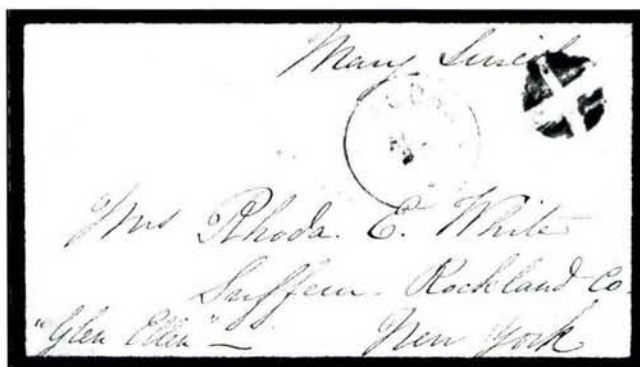 Mary Lincoln
Mrs Rhoda. E. White
Suffern. Rockland Co
"Glen Ellen" — New York